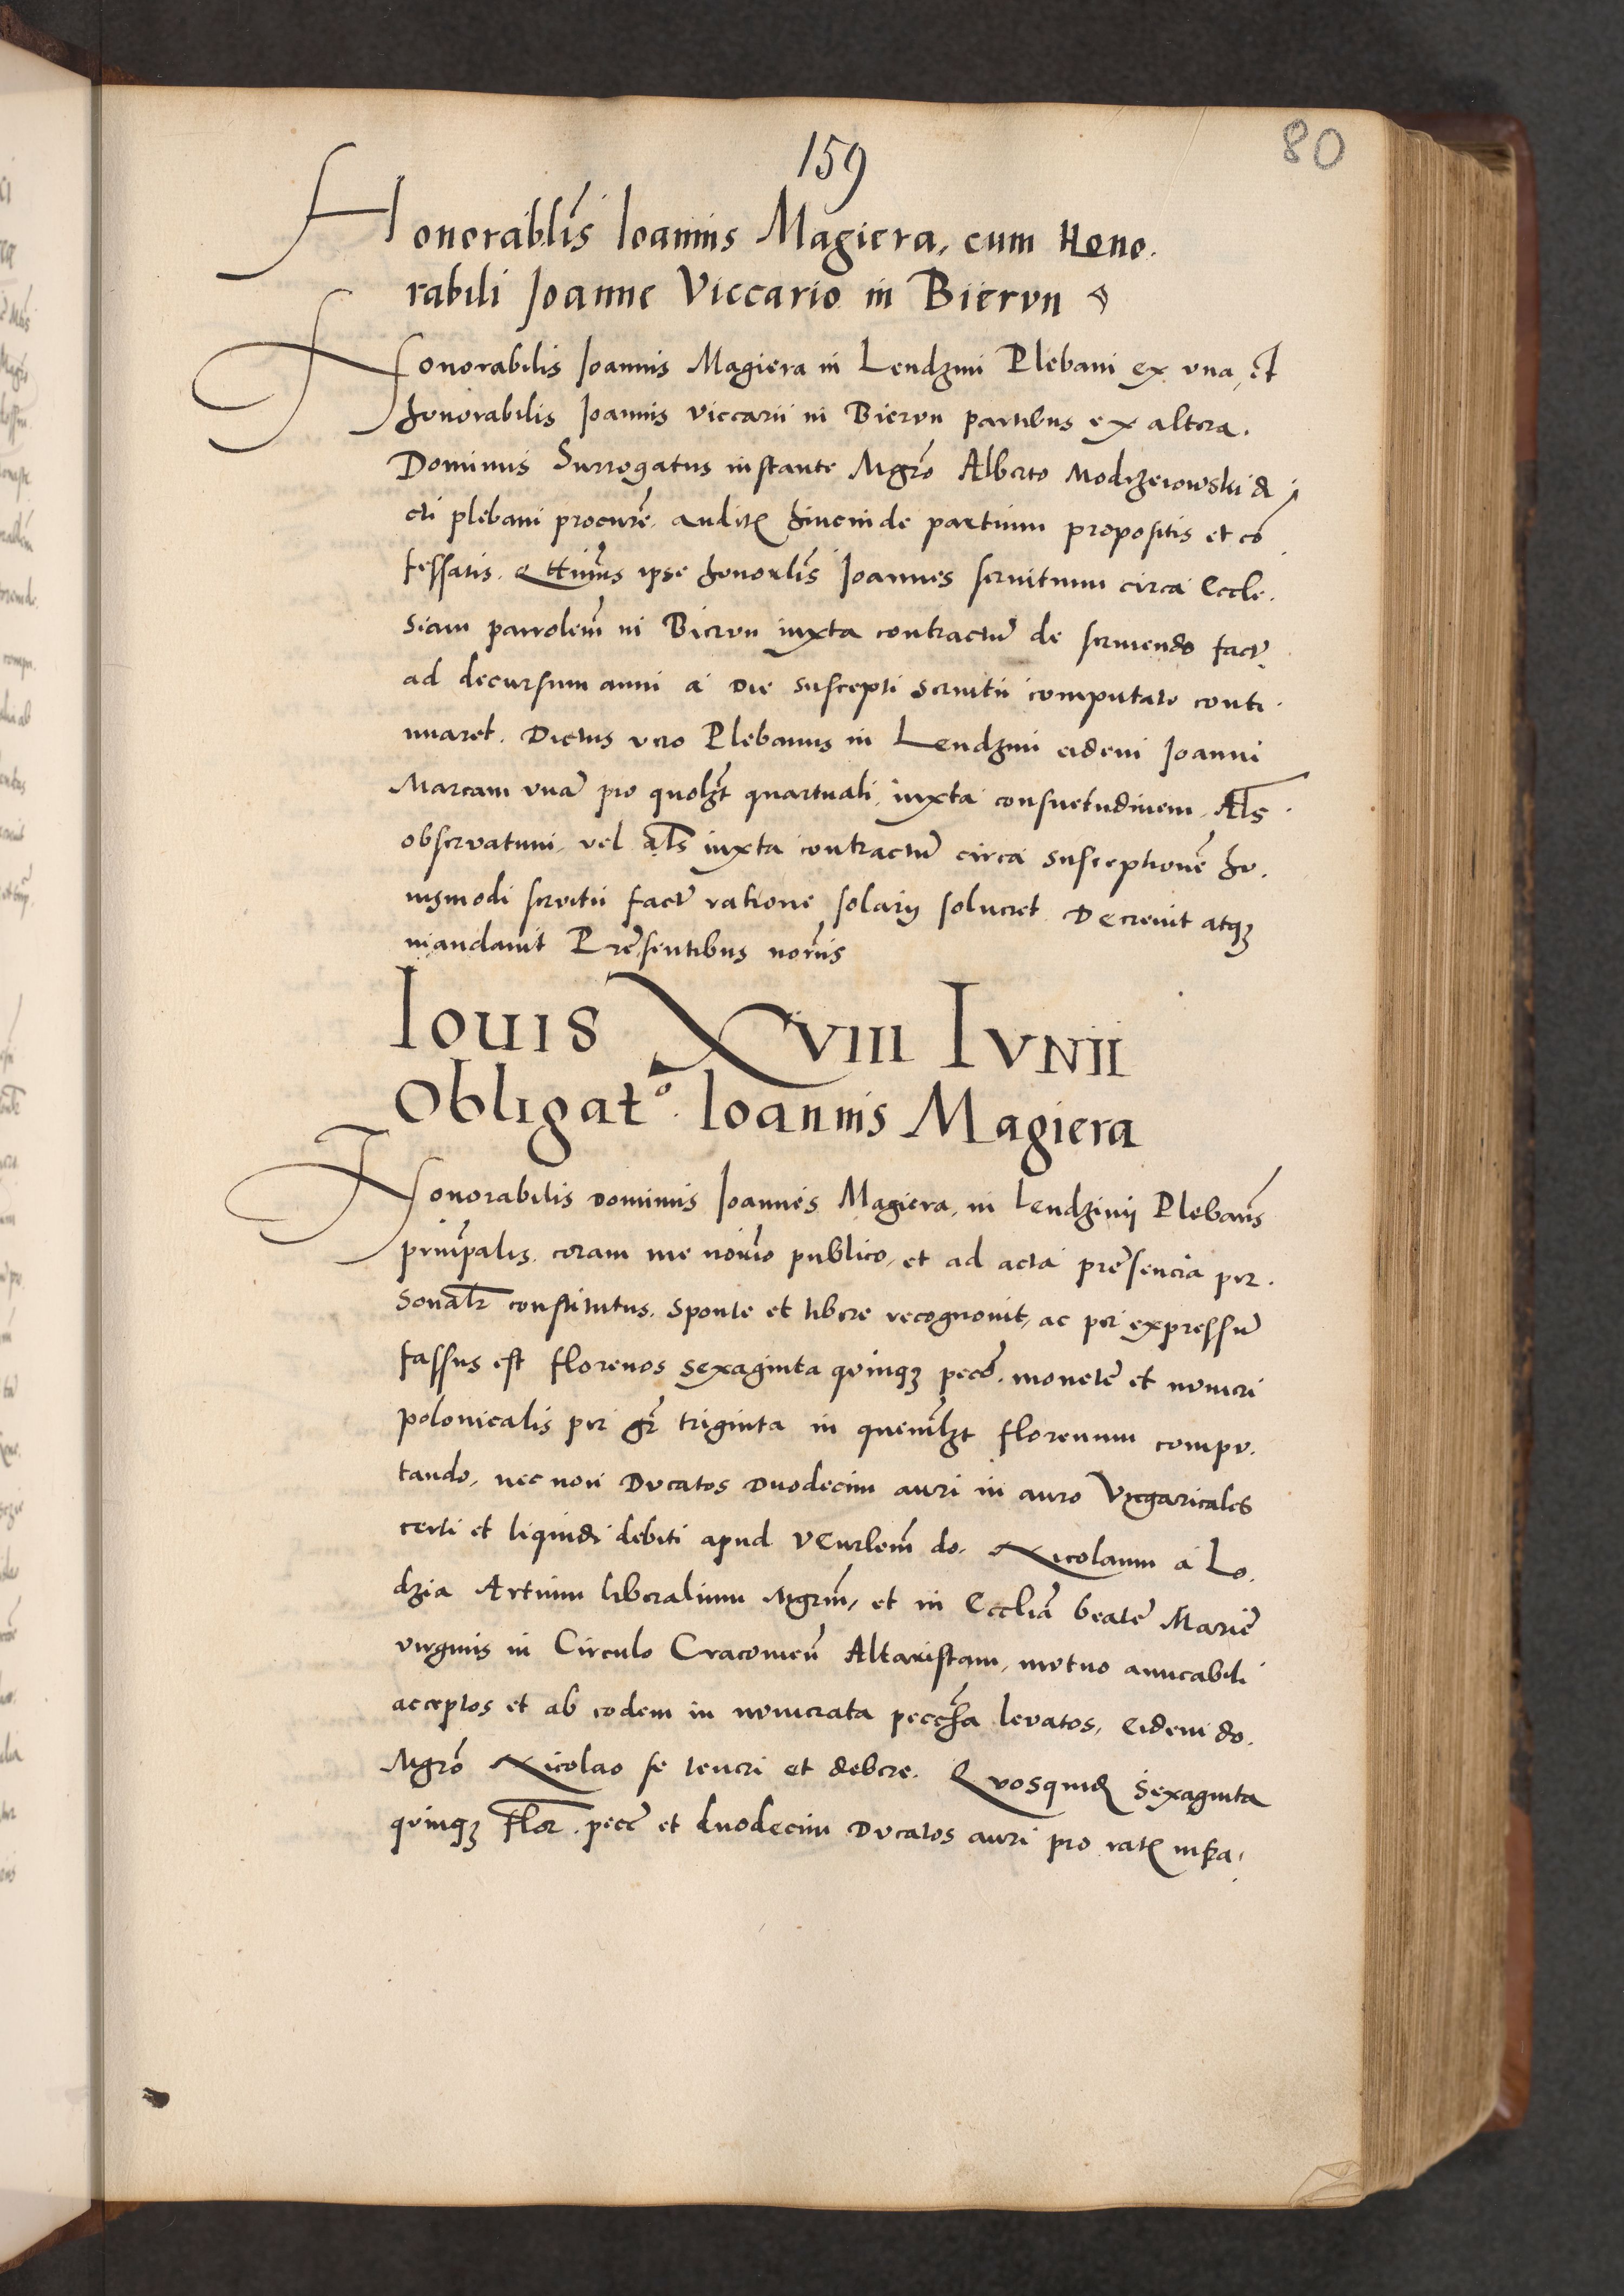 159
80
Honorablis̃ Ioannis Magiera, cum Hono.
rabili Joanne Viccario in Biervn
Honorabilis Joannis Magiera in Lendzini Plebani ex vna, et
honorabilis Joannis viccarii in Biervn partibus ex altera.
Dominus Surrogatus instante Mgrõ Alberto Modrzeiowski di
cti plebani procurẽ. audit̃ hincinde partium propositis et cõ
fessatis. Qttin̾us ipse honorlis̃ Joannes seruitium circa Eccle.
siam parrolem̃ in Biervn iuxta contractũ de seruiendo factũ
ad decursum anni a die suscepti seruitii computato conti.
nuaret. Dictus vero Plebanus in Lendzini eidem Joanni
Marcam vnã pro quolzt quartuali, iuxta consuetudinem, Als̃.
obseruatum, vel als̃ iuxta contractũ circa susceptionẽ hu.
iusmodi seruitii factũ ratione solarij solueret. Decreuit atqz
mandauit Prẽsentibus nor̃iis
Iouis XVIII IVNII
Obligat°. Ioannis Magiera
Honorabilis dominus Joannes Magiera, in Lendzinij Plebanũs
prin̾palis. coram me notar̃io publico, et ad acta prẽsencia per.
sonalr̃ constitutus. Sponte et libere recognouit, ac per expressũ
fassus est florenos sexaginta quinqz pecũ. monetẽ et numeri
polonicalis per gr̃ triginta in quemlzt florenum compu.
tando, nec non Ducatos duodecim auri in auro Vngaricales
certi et liquidi debiti apud Veñrlem̃ do. Nicolaum a Lo.
dzia Artium liberalium Mgrm̃, et in Eccliã beatẽ Mariẽ
virginis in Circulo Cracouieñ Altaristam, mutuo amicabili
acceptos et ab eodem in numerata pecũia leuatos, Eidem do.
Mgrõ Nicolao se teneri et debere. Quosquid̃ sexaginta
quinqz flor̃. pecc̃ et duodecim Ducatos auri pro rat̃ infra.